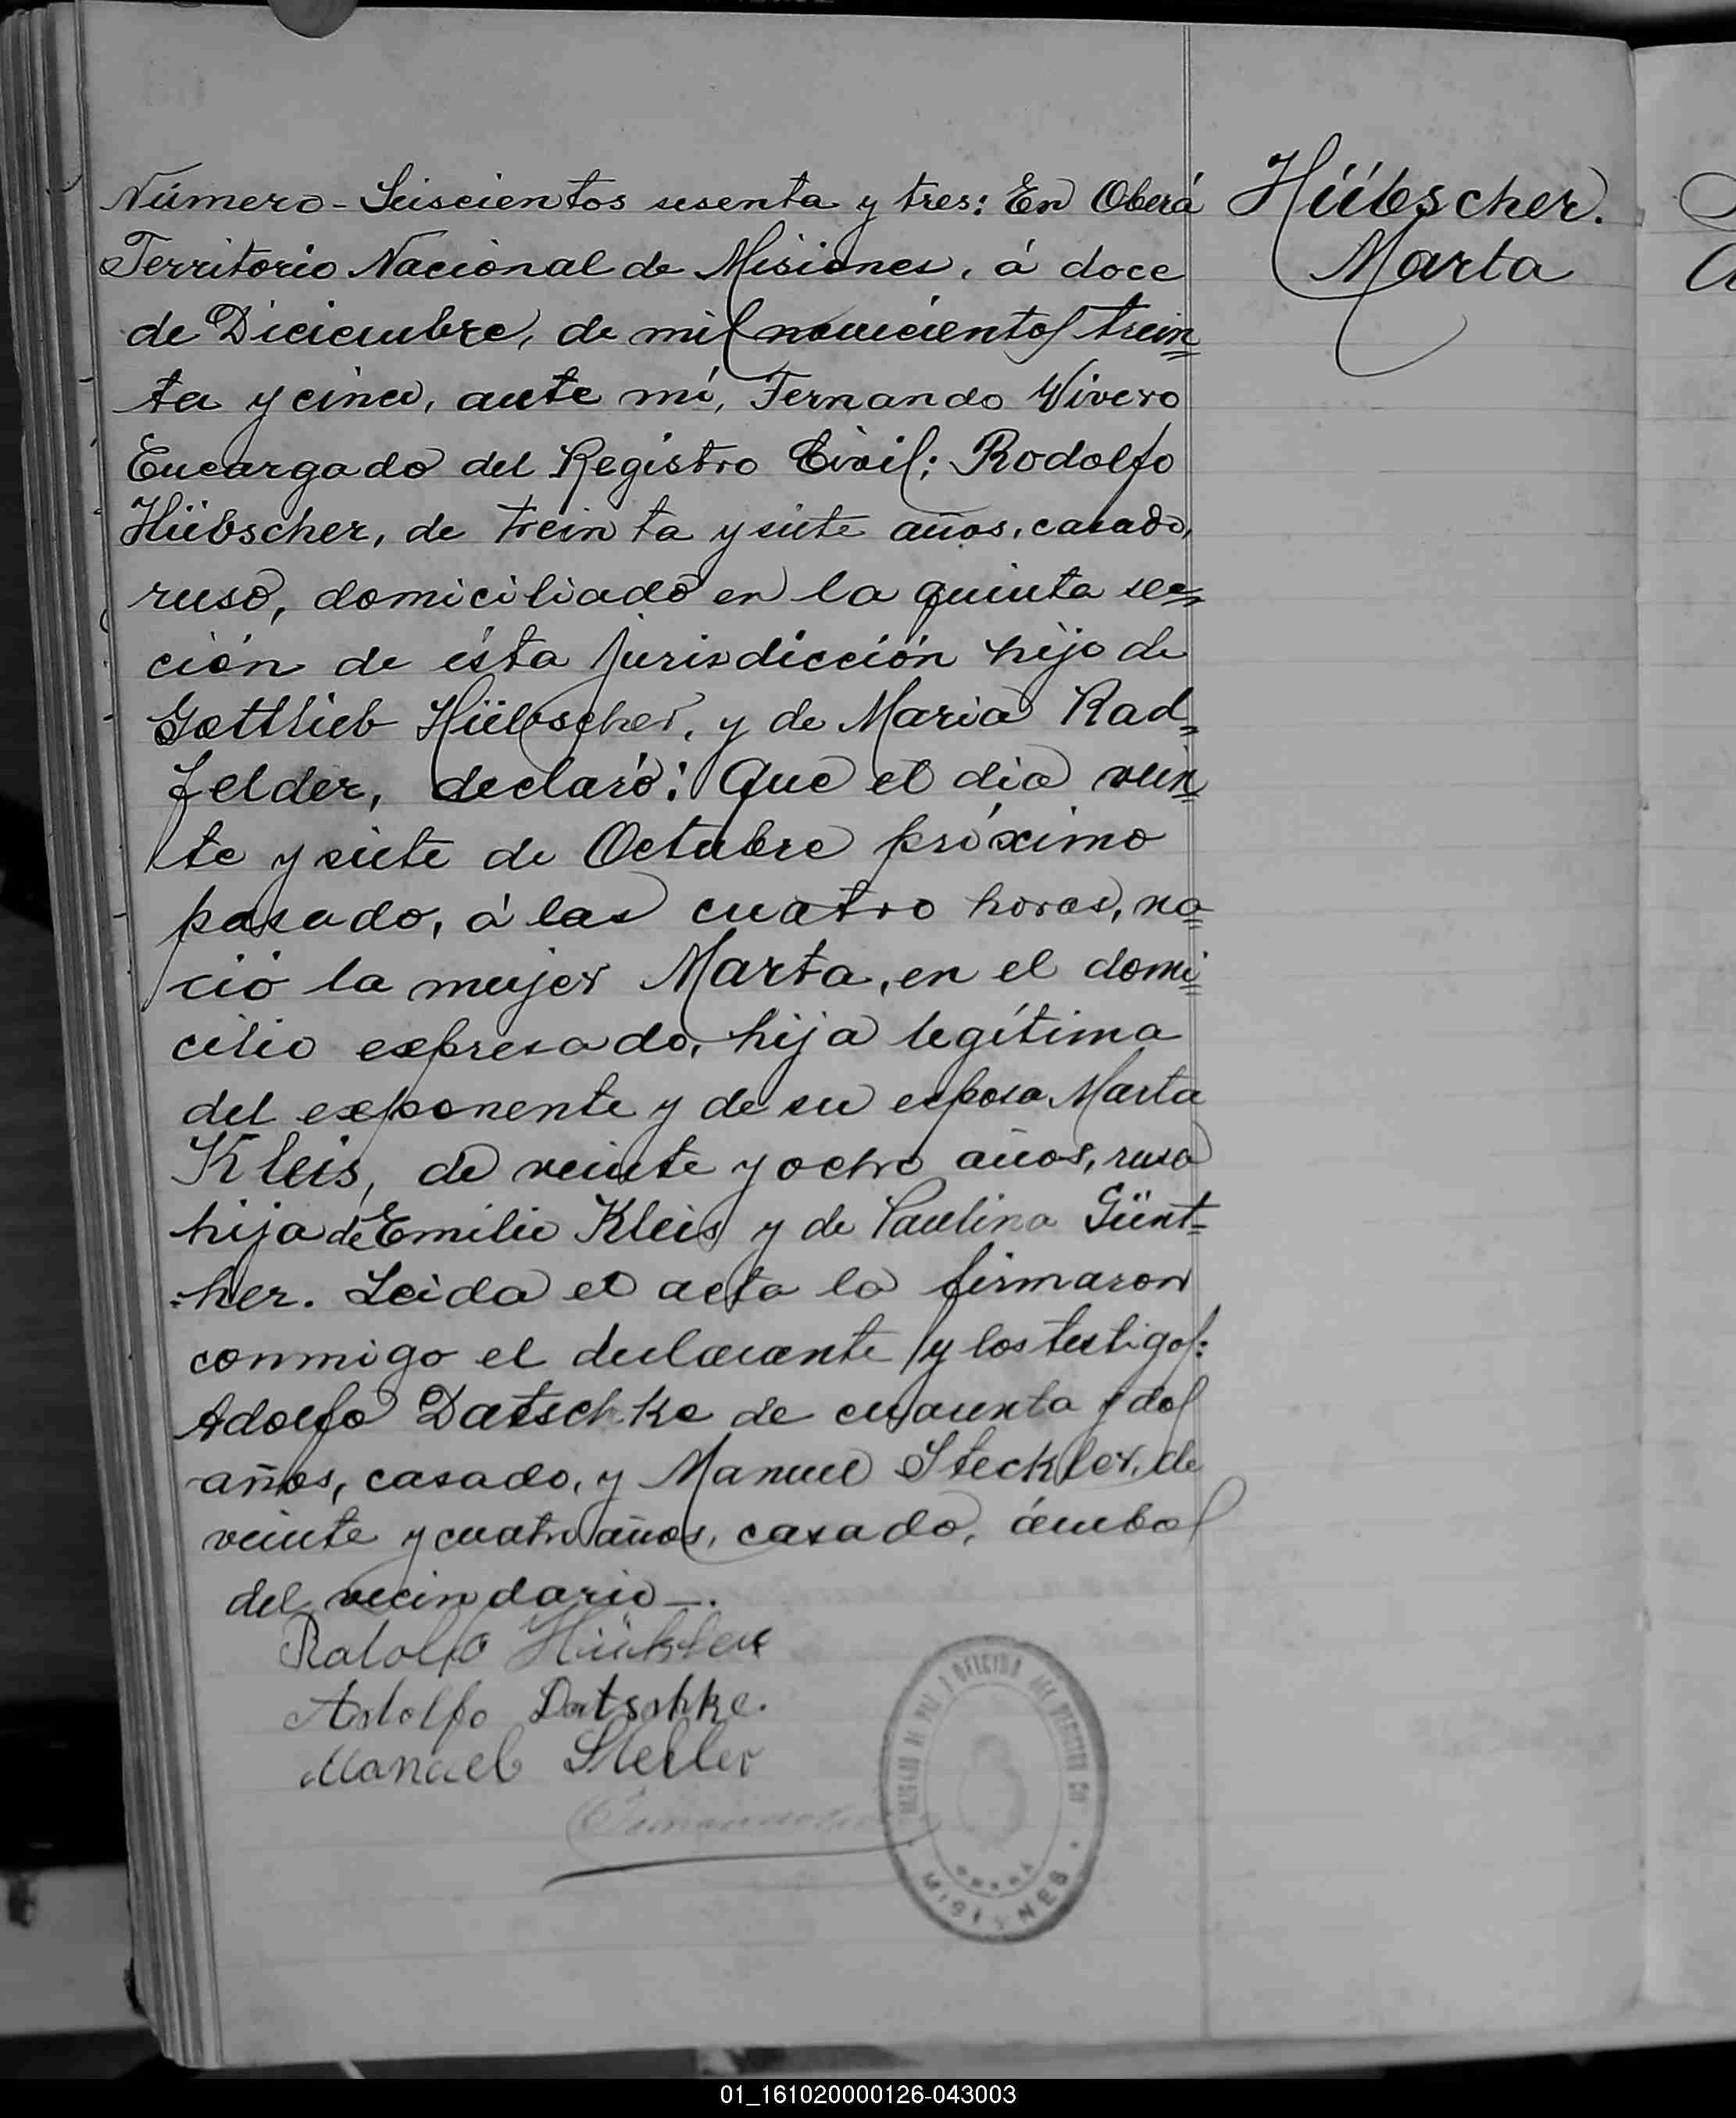 Número - Seiscientos sesenta y tres: En Oberá
Territorio Nacional de Misiones, á doce
de Diciembre, de mil novecientos trein=
ta y cinco, ante mí, Fernando Vivero
Encargado del Registro Civil; Rodolfo
Hübscher, de treinta y siete años, casado,
ruso, domiciliado en la quinta sec=
ción de ésta jurisdicción hijo de
Gottlieb Hübscher, y de Maria Rad=
felder, declaró: Que el día vein=
te y siete de Octubre próximo
pasado, á las cuatro horas, na=
ció la mujer Marta, en el domi=
cilio expresado, hija legítima
del exponente y de su esposa Marta
Kleis, de veinte y ocho años, rusa
hija de Emilio Kleis y de Paulina Günt=
=her. Leida el acta la firmaron
conmigo el declarante y los testigos:
Adolfo Datschke de cuarenta y dos
años, casado, y Manuel Steckler, de
veinte y cuatro años, casado, ámbos
del vecindario —.
Hübscher.
Marta
Adolfo Datschke.
Manuel
MISIONES
01_161020000126-043003